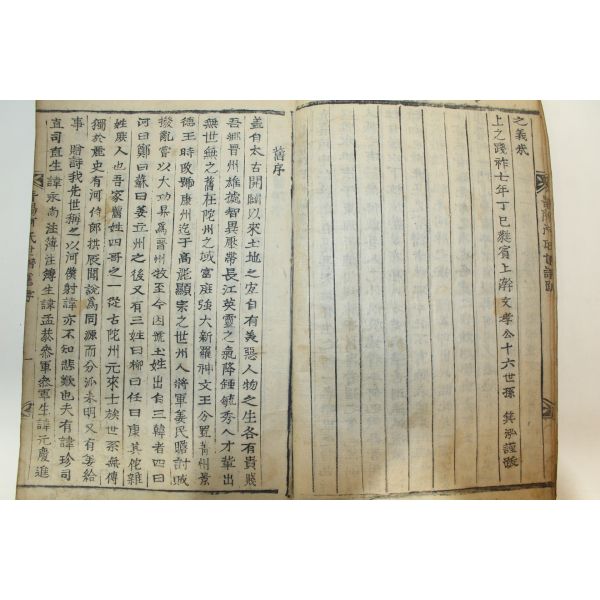 之義來
上之踐祚七年丁巳蕤賓上澣文孝公十六世孫 箕泓謹跋
舊序
盖自太古開闢以來土地之定自有美惡人物之生各有貴賤
吾鄕晋州雄據智異壓帶長江英靈之氣降鍾毓秀人才輩出
無世無之舊在陀州之域富庭強大新羅神文王分置菁州景
德王時改號康州迄于高麗顯宗之世州人將軍姜民瞻討賊
撥亂嘗以大功昇爲晋州牧至今因號土姓出自三韓者四曰
河曰鄭曰蘇曰姜立州之後又有三姓曰柳曰任曰康其佗雜
姓庶人也吾家舊姓四哥之一從古陀州元來士族世系無傳
獨於麗史有河侍郞拱辰聞說爲同源而分派未明又有姜給
事 贈詩我先世稱之以河僕射諱亦不知悲歎也夫有諱珍司
直司直生諱永尙注簿注簿生諱孟恭叅軍叅軍生諱元慶進